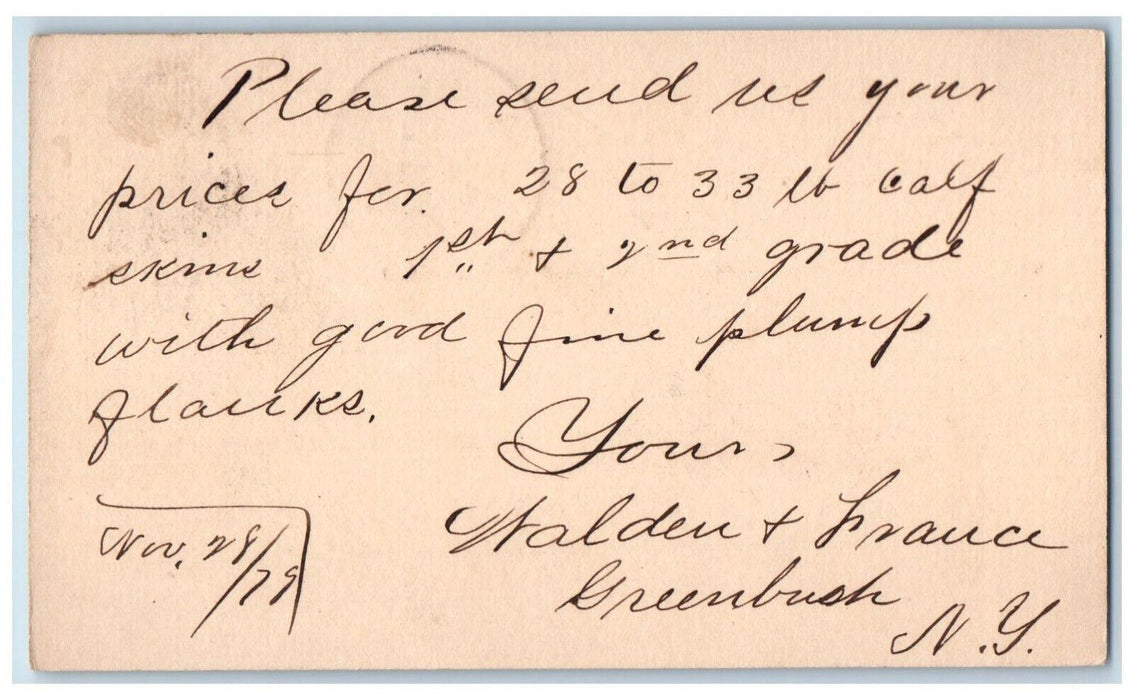 Please send us your
prices for. 28 to 33 lb calf
skins 1st + 2nd grade
with good fine plump
flanks.
Yours
Walden + France
Greenbush
N.Y.
Nov. 28/79